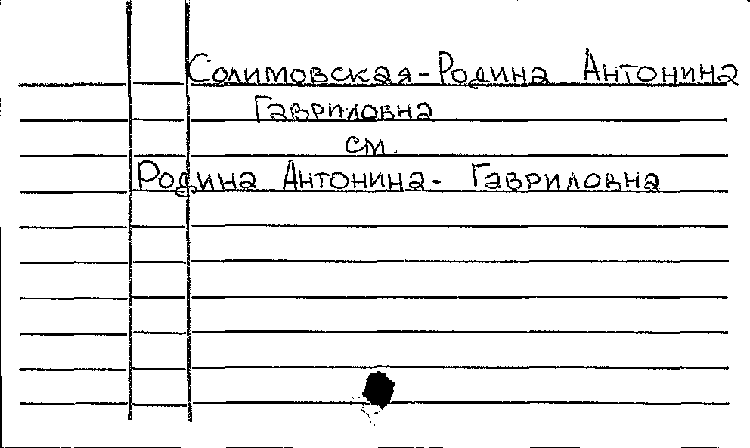 Солимовская-Родина Антонина
Гавриловна
см.
Родина Антонина- Гавриловна